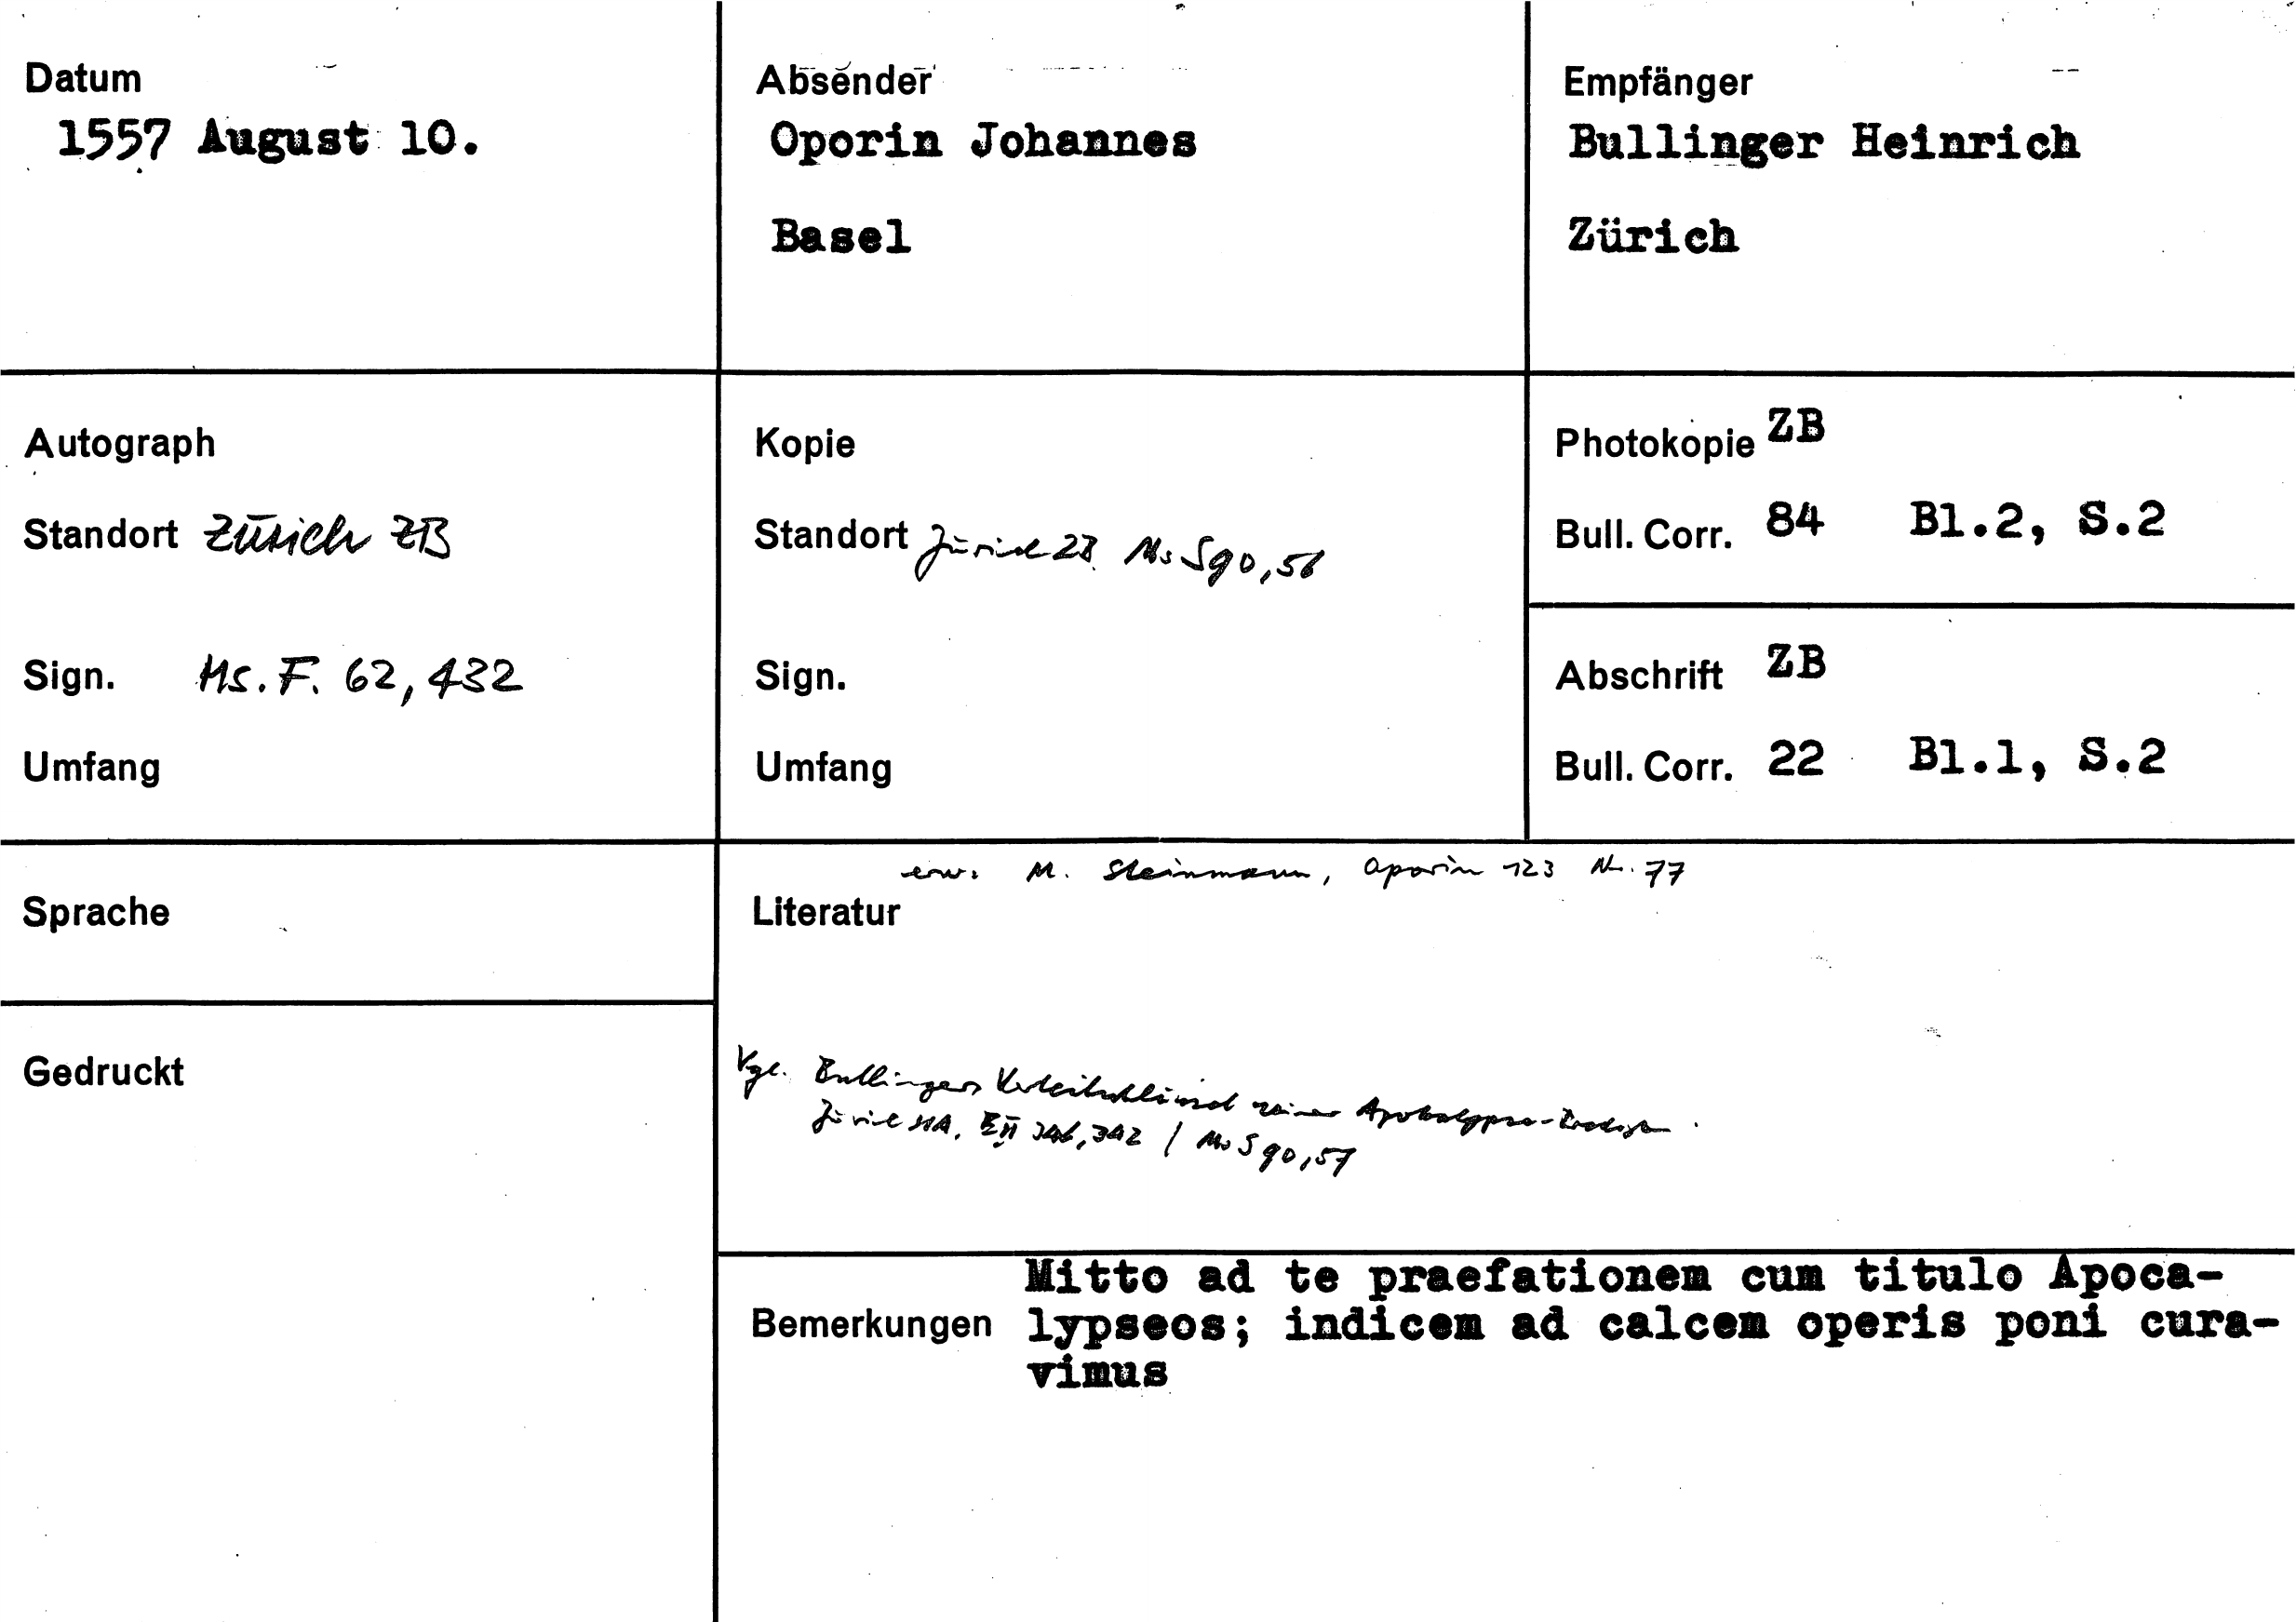 Datum
1557 August 10.
Absender
Oporin Johannes
Basel
Empfänger
Bullinger Heinrich
Zürich
Autograph
Standort Zürich ZB
Sign. Ms. F. 62, 432
Umfang
Kopie
Standort Zürich ZB Ms S 90, 56
Sign.
Umfang
Photokopie ZB
Bull. Corr. 84 Bl.2, S.2
Abschrift ZB
Bull. Corr. 22 Bl.1, S.2
Sprache
Gedruckt
erw. M. Steinmann, Oporin 123 Nr. 77
Literatur
Vgl. Bullingers seiner Apokalypse-
Zürich StA, E II 346, 342 / Ms S 90, 57
Bemerkungen
Mitto ad te praefationem cum titulo Apoca-
lypseos; indicem ad calcem operis poni cura-
vimus